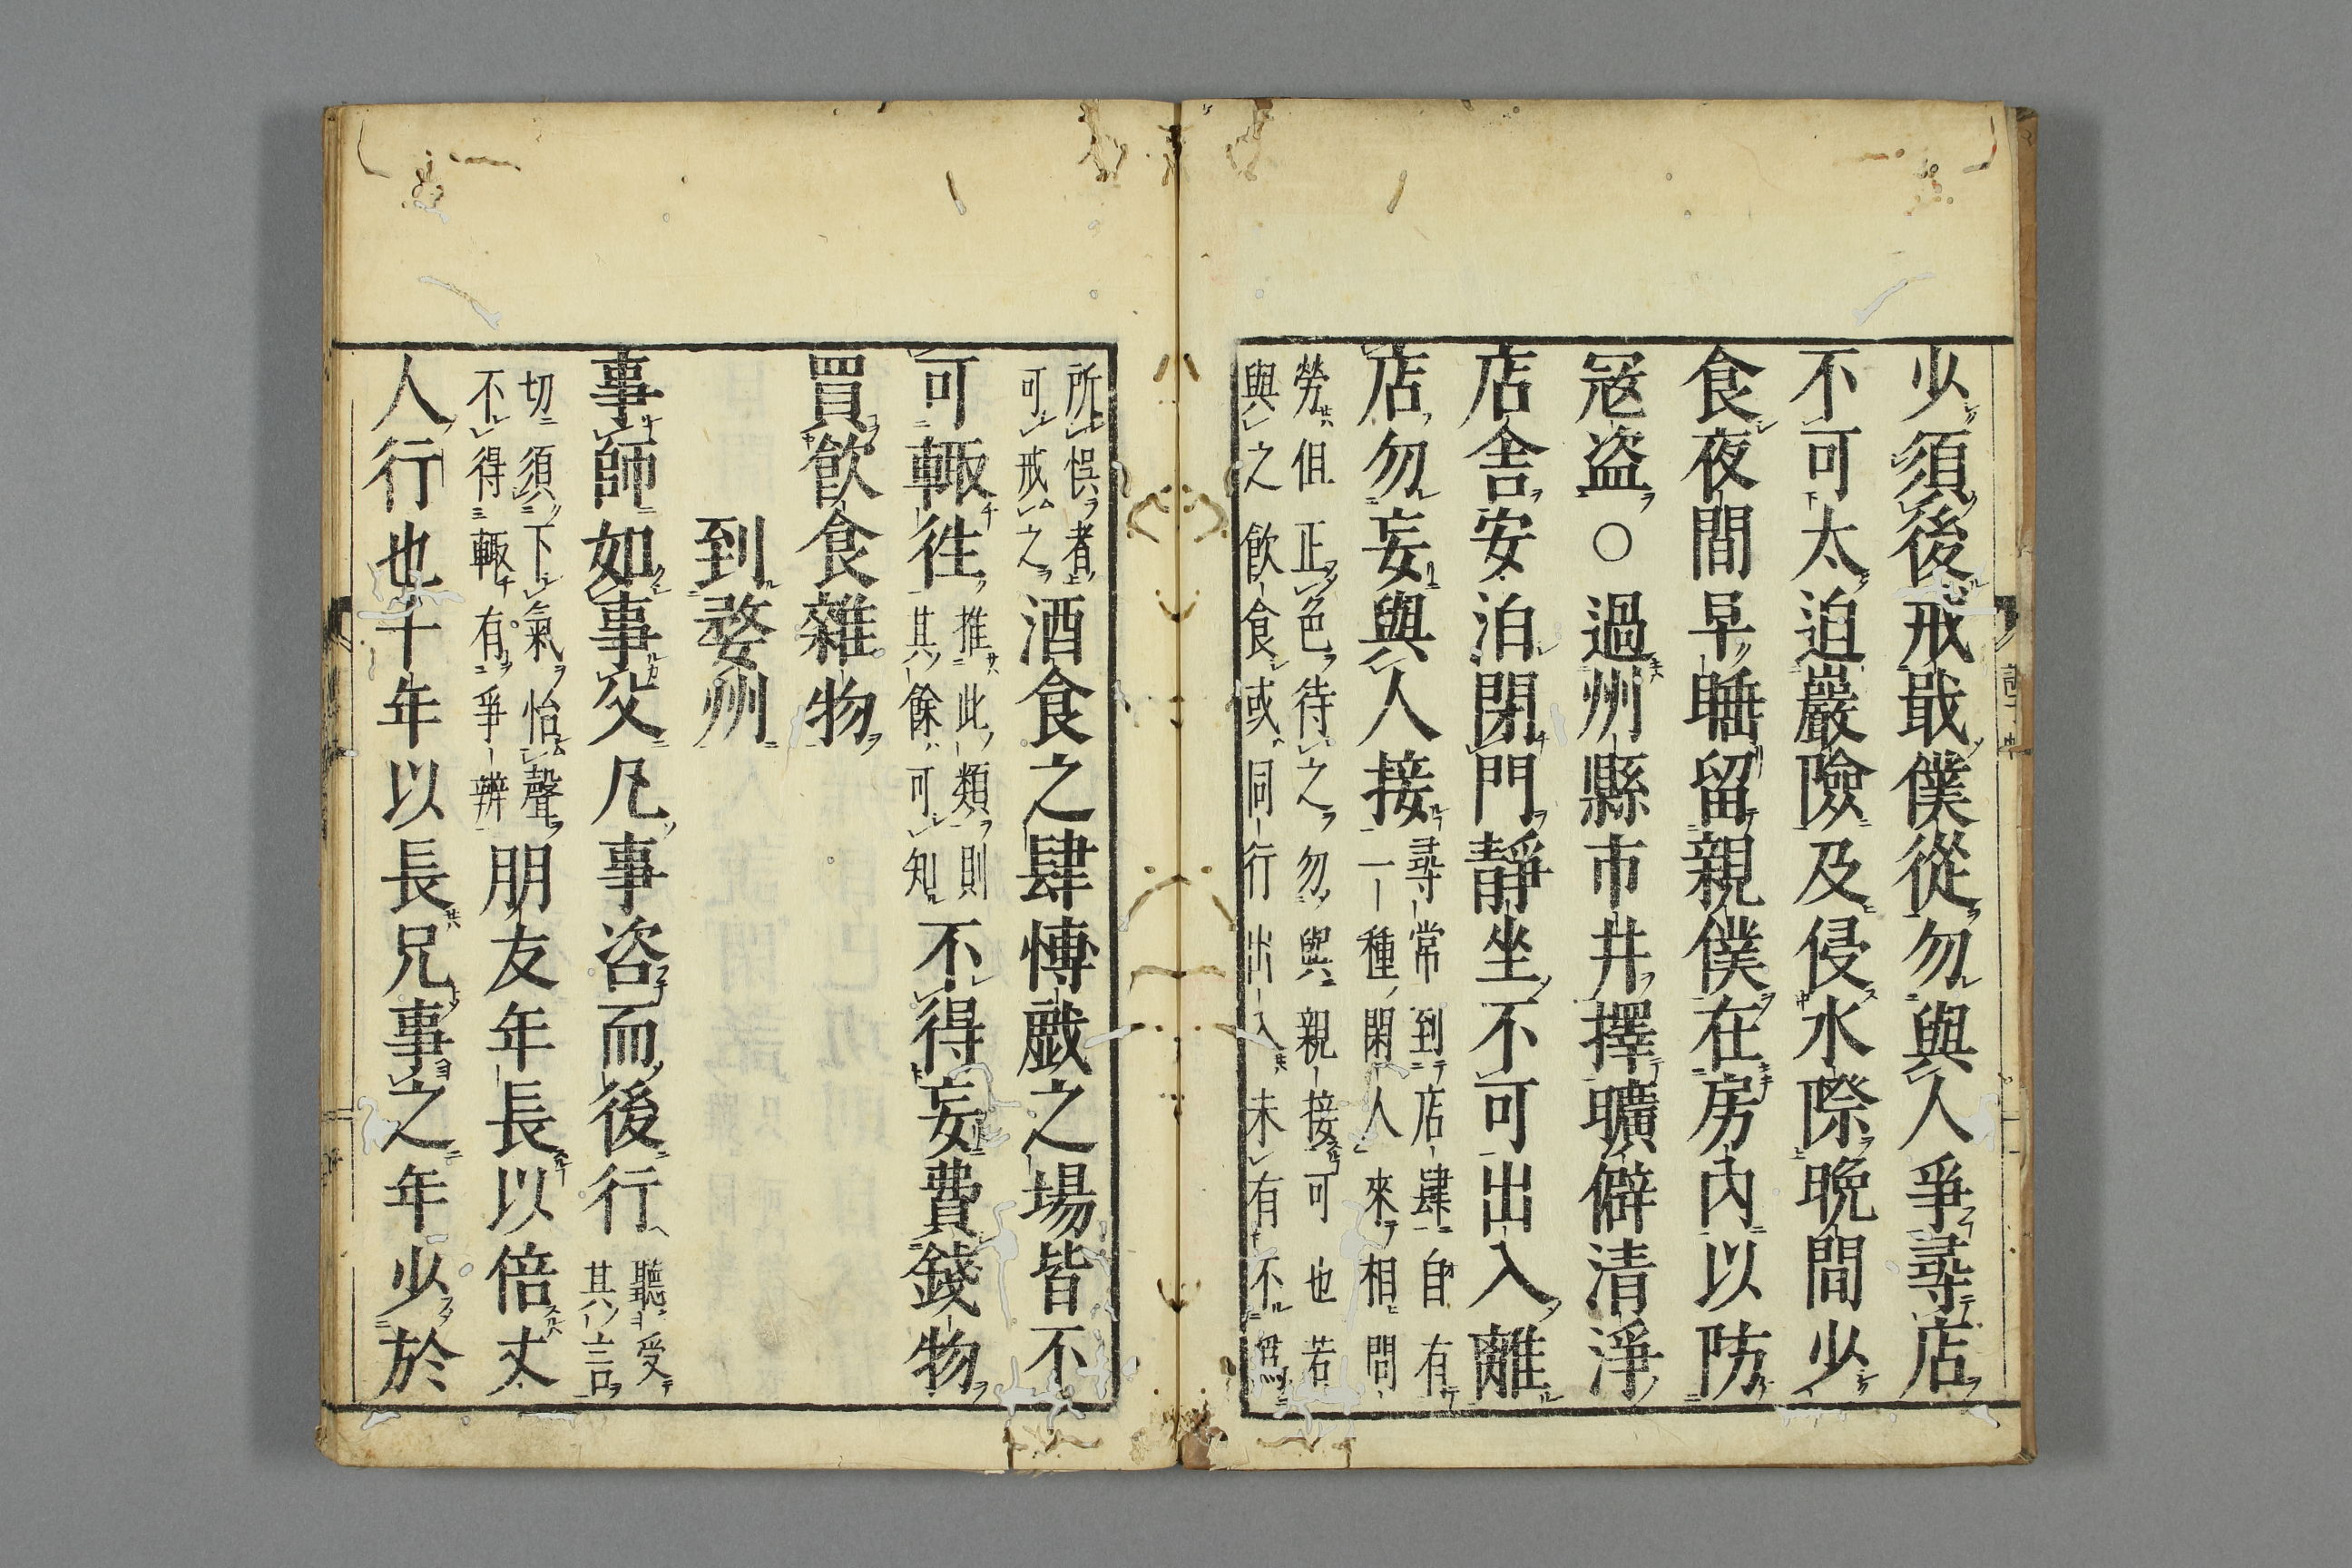 少須後戒戢僕從勿與人爭尋店
不可太迫巖險及侵水際晚間少
食夜間早睡留親僕在房內以防
冦盗○過州縣市井擇曠僻清淨
店舎安泊閉門靜坐不可出入離
店勿妄與人接
尋常到店肆自有
一種閑人來相問
勞但正色待之勿與親接可也若
與之飲食或同行出入未有不爲
所悞者
可戒之
酒食之肆博戯之場皆不
可輙徃
推此類則
其餘可知
不得妄費錢物
買飲食雜物
到婺州
事師如事父凡事咨而後行
聽受
其言
切須下氣怡聲
不得輙有爭辨
朋友年長以倍丈
人行也十年以長兄事之年少於